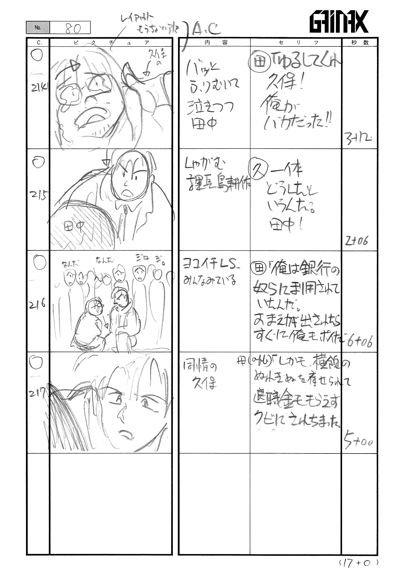 № 80
A.C
GAINAX
C. ピクチュア 内容 セリフ 秒数
214
久保の
バッと
ふりむいて
泣きつつ
田中
田「ゆるしてくれ
久保!
俺が
バカだった!!
3+12
215
田中
しゃがむ
課長島耕作
久 一体
どうしたと
いうんだ。
田中!
2+06
216
なんだ なんだ
ヨコイチL.S.
みんなみている
田「俺は銀行の
奴らに利用されて
いたんだ。
おまえが出されたら
すぐに俺もポイだ
6+06
217
同情の
久保
しかも、横領の
ぬれぎぬを着せられて
退職金ももらえず
クビにされちまった
5+00
(17+0)